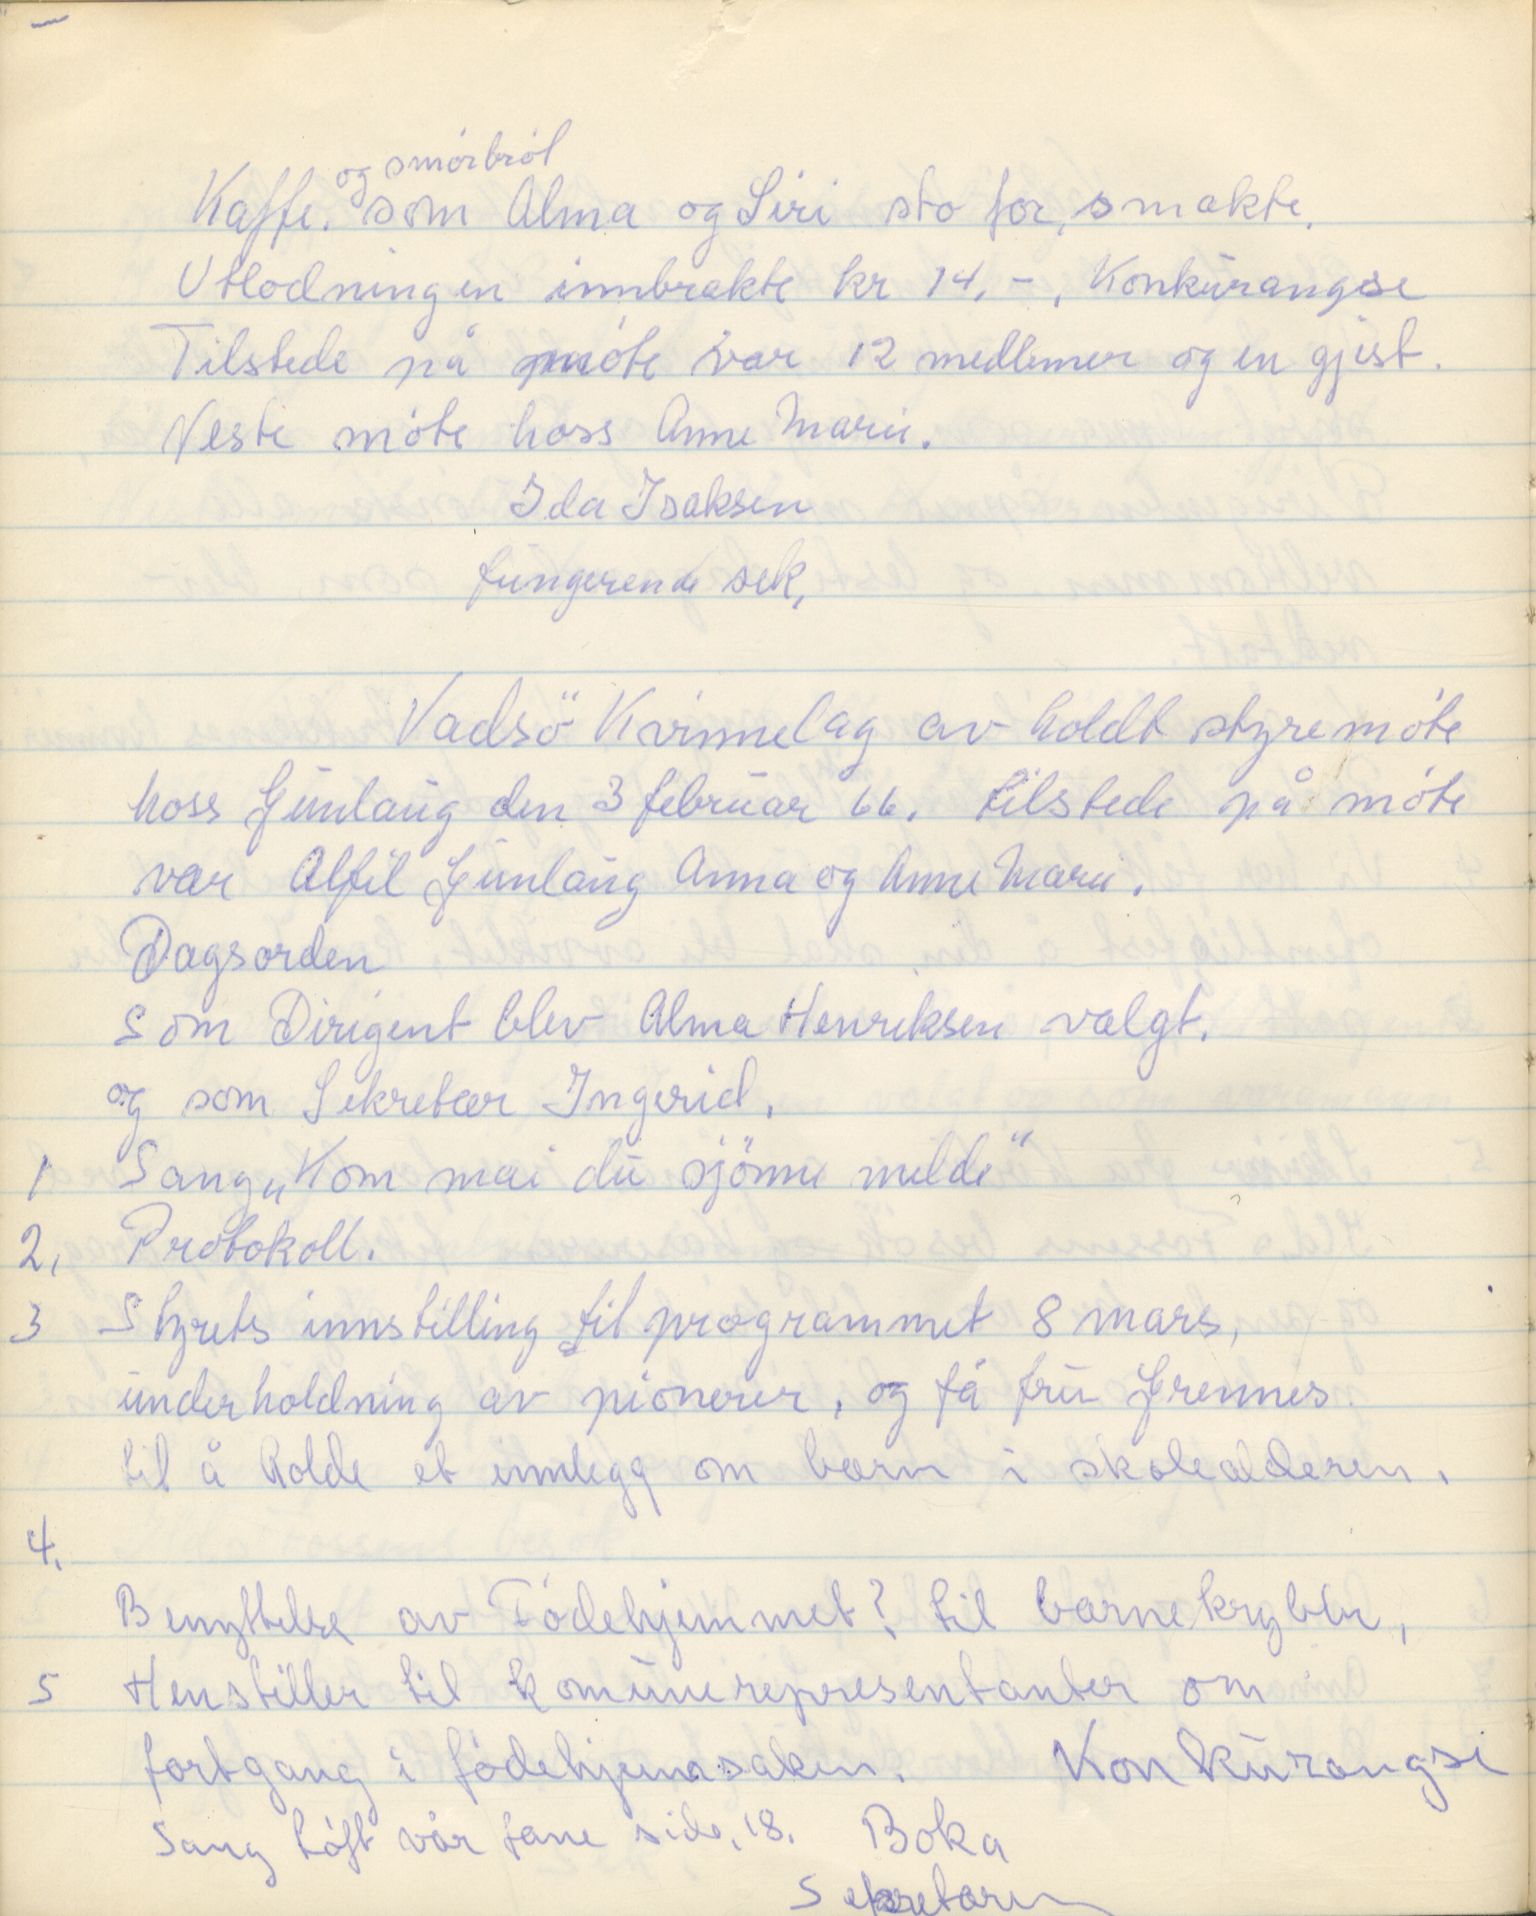 og smórbról
Kaffe. som Alma og Siri sto for, smakte.
Utlodningen innbrakte kr 14,-, Konkurangse
Tilstede på móte var 12 medlemer og en gjest.
Neste móte hoss Anne Marie.
Ida Isaksen
fungerende sek,
Vadsö Kvinnelag av holdt styremóte
hoss Gunlaug den 3 februar 66. tilstede på móte
var Alfil Gunlaug Anna og Anne Marie.
Dagsorden
Som Dirigent blev Alma Henriksen valgt.
og som Sekretær Ingerid.
1 Sang „Kom mai du sjönne milde"
2, Protokoll.
3 Styrets innstilling til programmet 8 mars,
underholdning av pionerer, og få fru Grennes
til å holde et innlegg om barn i skolealderen.
4.
Benyttelse av Fódehjemmet? til barnekrybbe,
5 Henstiller til komunerepresentanter om
fortgang i fódehjemsaken. Konkurangsi
Sang Lóft vår fane side, 18. Boka
Sekretæren